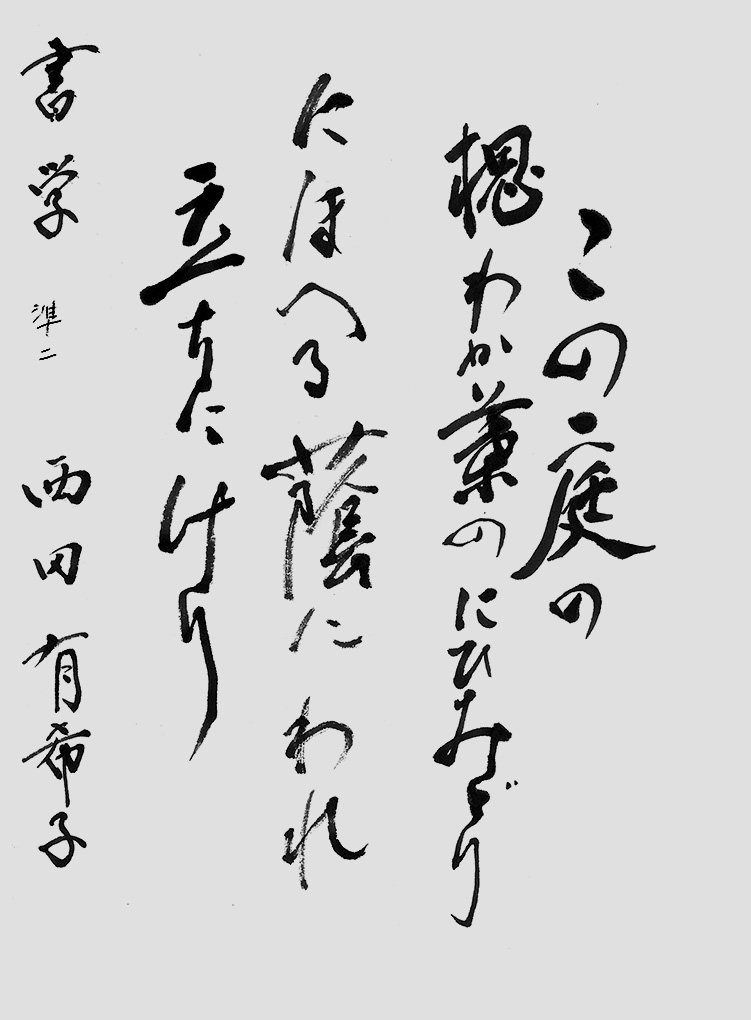 この庭の
槐わか葉のにひみどり
にほへる蔭にわれ
立ちにけり
書学 準二 西田有希子